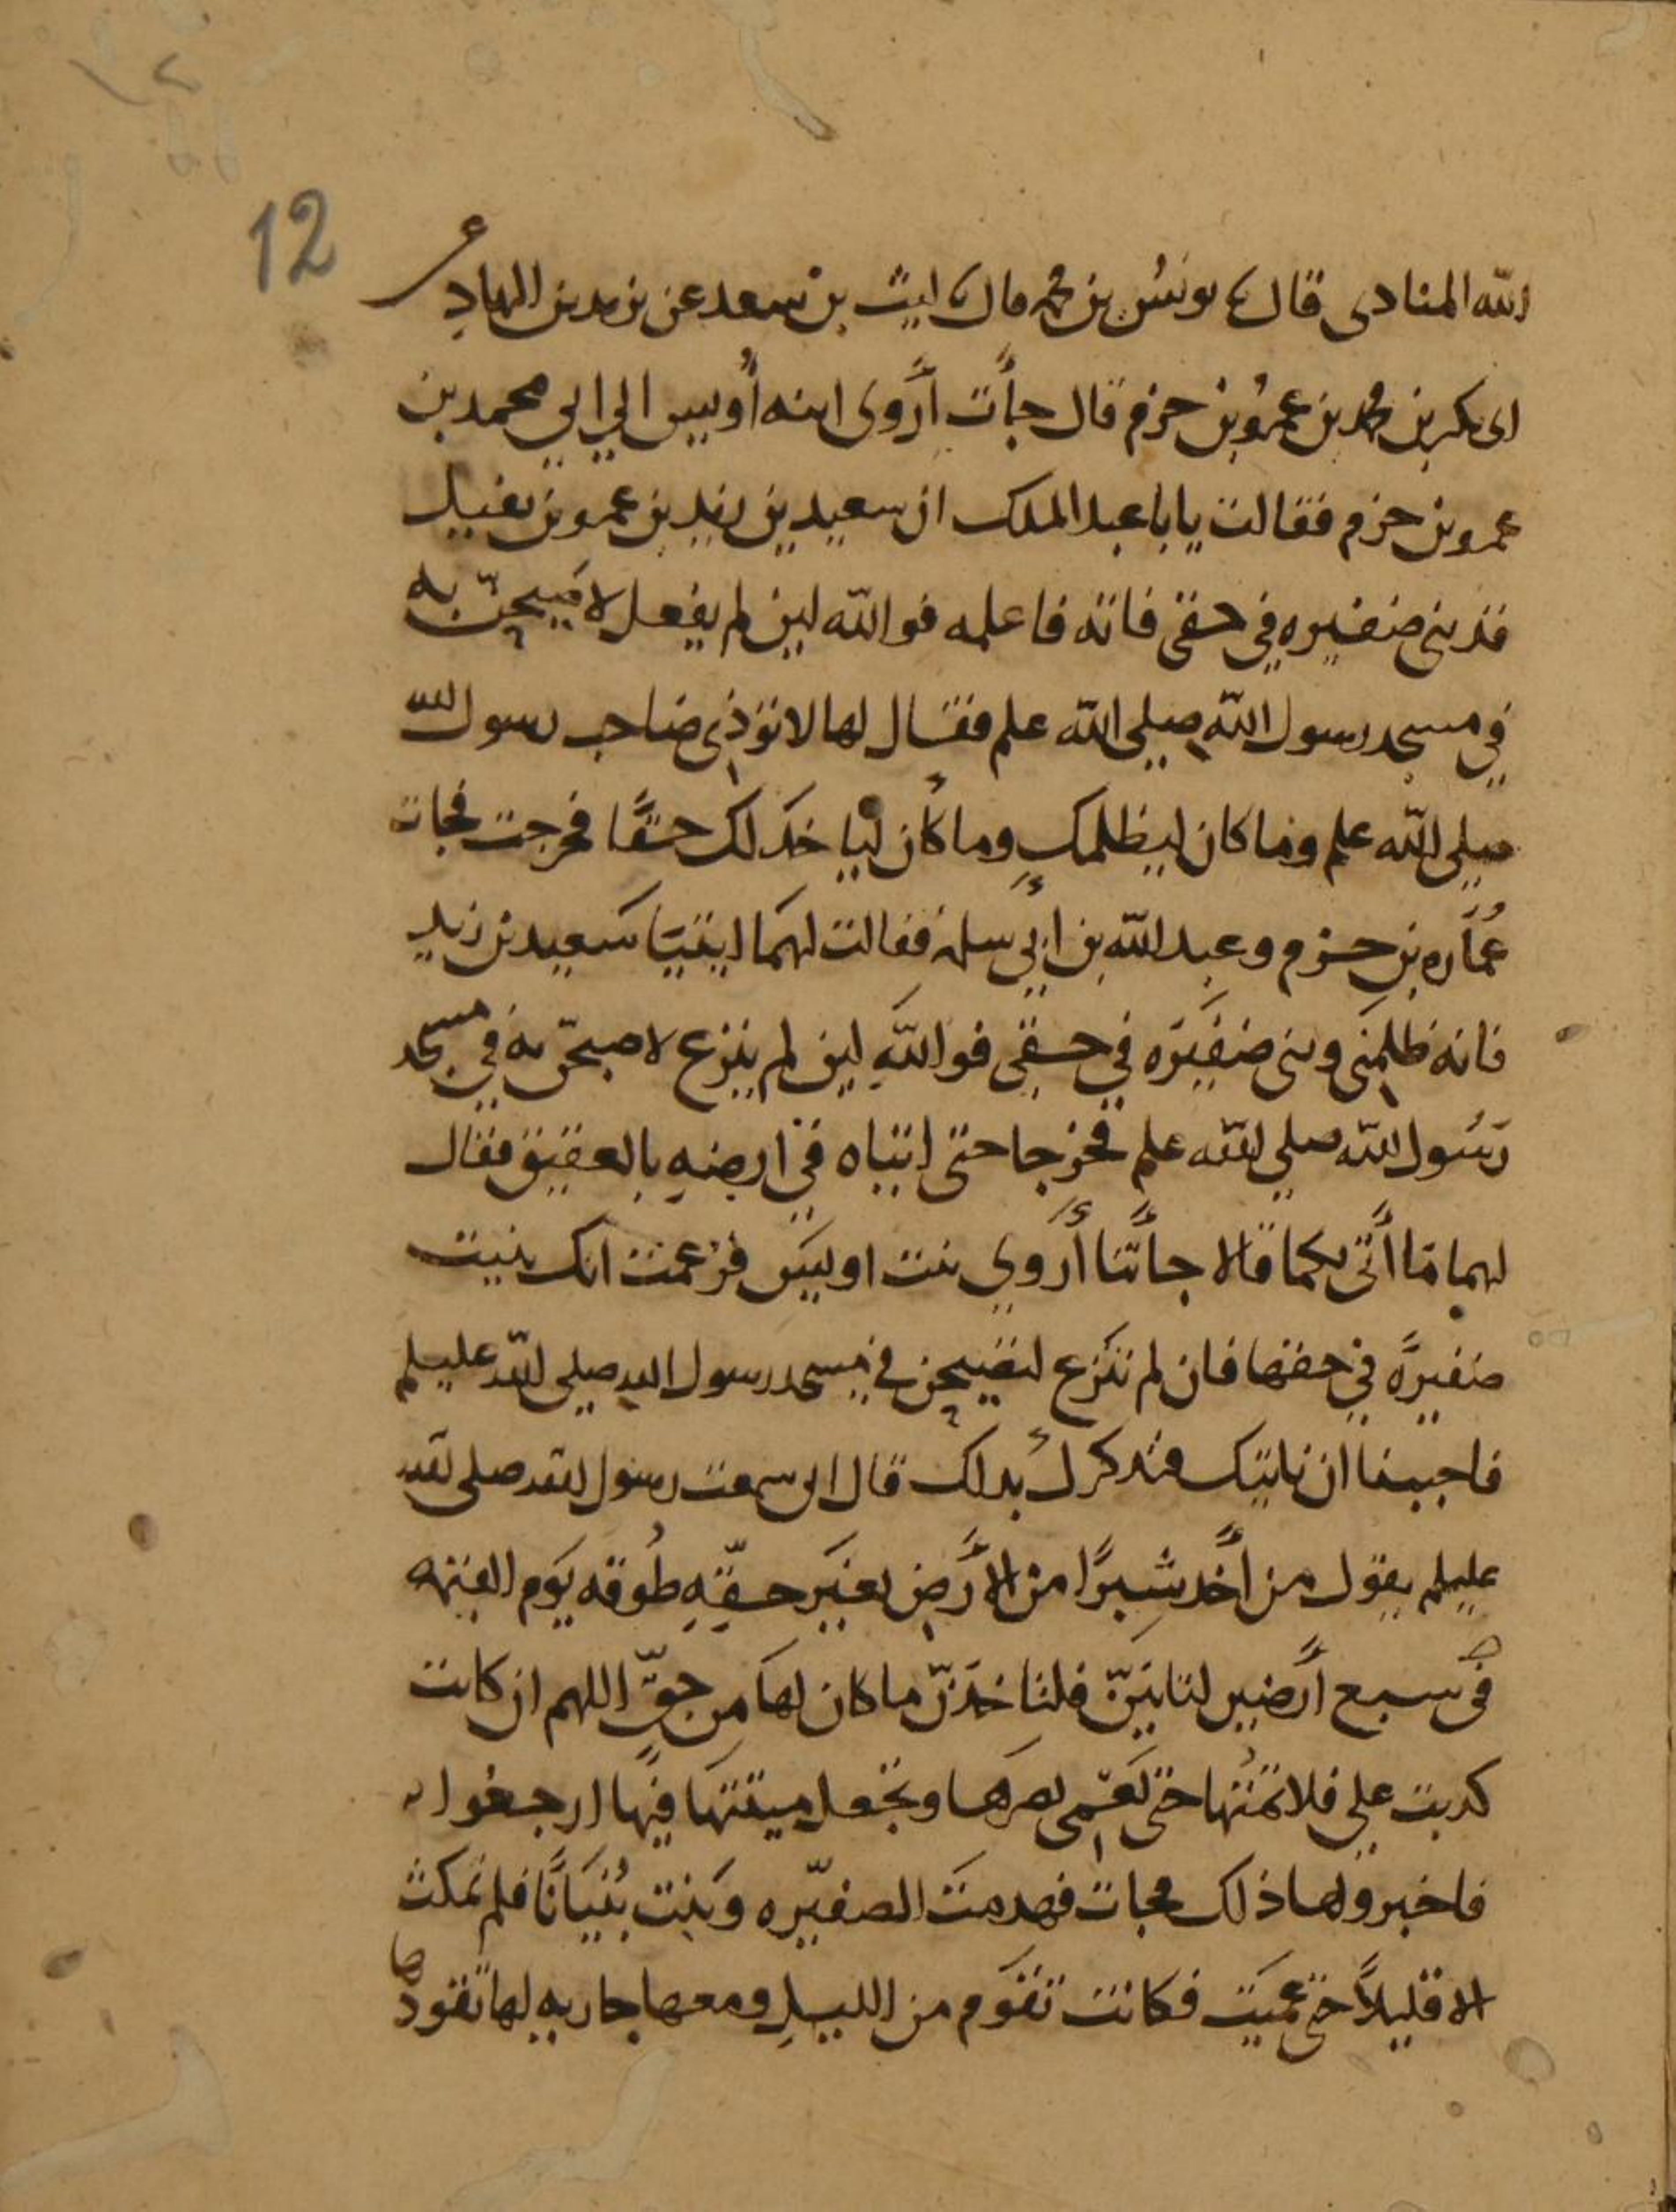 12
الله المنادى قال نا يونس بن محمد قال نا ليث بن سعد عن يزيد بن الهاد عن
ابى بكر بن محمد بن عمرو بن حزم قال جأت أروى ابنه أويس الي ابي محمد بن
عمرو بن حزم فقالت يا با عبد الملك ان سعيد بن زيد بن عمرو بن نفيل
قد بنى ضفيره في حقى فاته فاعلمه فو الله لين لم يفعل لاصيحن به
في مسجد رسول الله صلي الله علم فقال لها لا تؤذى صاحب رسول الله
صلي الله علم وما كان ليظلمك وما كان لياخذ لك حقا فخرجت فجات
عماره بن حزم وعبد الله بن ابي سلمه فقالت لهما ايتيا سعيد بن زيد
فانه ظلمنى وبنى ضفيره في حقى فوالله لين لم ينزع لاصيحن به في مسجد
رسول الله صلي الله علم فخرجا حتى اتياه في ارضه بالعقيق فقال
لهما ما أتى بكما قالا جأتنا أروي بنت اويس فزعمت انك بنيت
ضفيرة في حقها فان لم تنزع لتصيحن في مسجد رسول الله صلي الله عليلم
فاحببنا ان ناتيك فنذكرك بذلك قال انى سمعت رسول الله صلى الله
عليلم يقول من أخذ شبرا من الأرض بغير حقه طوقه يوم القيمه
فى سبع أرضين لتاتين فلتاخذن ما كان لها من حق اللهم ان كانت
كذبت علي فلا تمتها حتى تعمى بصرها وتجعل ميتتها فيها ارجعوا
فاخبروها ذلك فجات فهدمت الضفيره وبنت بنيانا فلم تمكث
الا قليلا حتى عميت فكانت تقوم من الليل ومعها جاريه لها تقودها